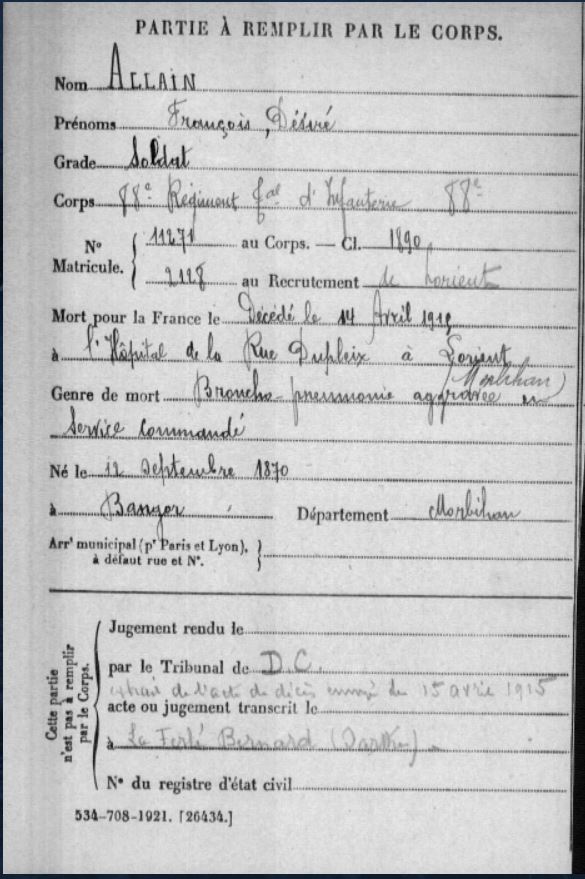 PARTIE À REMPLIR PAR LE CORPS.
Nom ALLAIN
Prénoms François, Désiré
Grade Soldat
Corps 88e Régiment tal d'Infanterie 88e
No Matricule. { 11271 au Corps. — Cl. 1890
2128 au Recrutement de Lorient
Mort pour la France le Décédé le 14 Avril 1915
à l'Hôpital de la Rue Dupleix à Lorient
(Morbihan)
Genre de mort Broncho-pneumonie aggravée en
Service Commandé
Né le 12 Septembre 1870
à Bangor Département Morbihan
Arrt municipal (pr Paris et Lyon), à défaut rue et No. }
Cette partie n'est pas à remplir par le Corps. {
Jugement rendu le
par le Tribunal de D.C.
extrait de l'acte de décès envoyé le 15 avril 1915
acte ou jugement transcrit le
à La Ferté Bernard (Sarthe)
No du registre d'état civil
534-708-1921. [26434.]